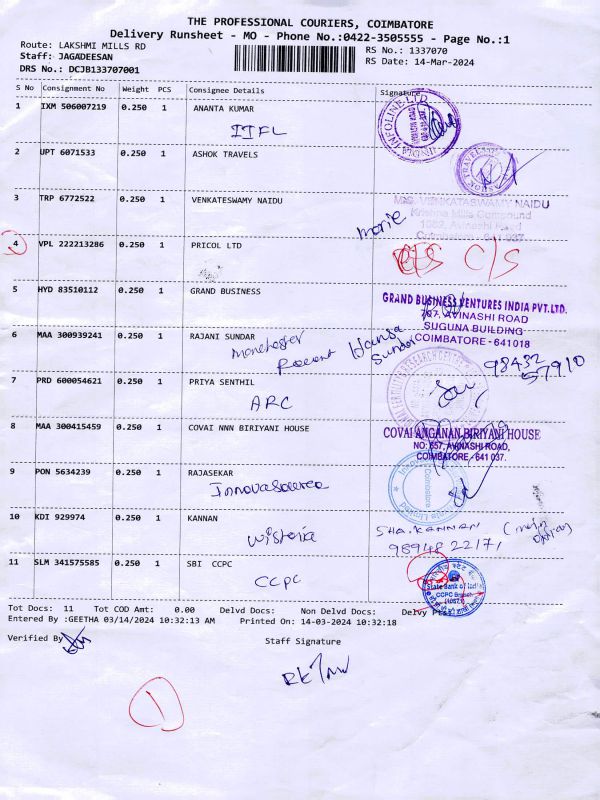 THE PROFESSIONAL COURIERS, COIMBATORE
Delivery Runsheet - MO - Phone No.:0422-3505555 - Page No.:1
Route: LAKSHMI MILLS RD
RS No.: 1337070
Staff: JAGADEESAN
RS Date: 14-Mar-2024
DRS No.: DCJB133707001
S No Consignment No Weight PCS Consignee Details Signature
1 IXM 506007219 0.250 1 ANANTA KUMAR
IIFL
INFOLINE LTD
2 UPT 6071533 0.250 1 ASHOK TRAVELS
3 TRP 6772522 0.250 1 VENKATESWAMY NAIDU
M/S. VENKATASWAMY NAIDU
Krishna Mills Compound
1082, Avinashi Road
Coimbatore 641 037
4 VPL 222213286 0.250 1 PRICOL LTD
C/S
5 HYD 83510112 0.250 1 GRAND BUSINESS
GRAND BUSINESS VENTURES INDIA PVT.LTD.
787, AVINASHI ROAD
SUGUNA BUILDING
COIMBATORE - 641018
6 MAA 300939241 0.250 1 RAJANI SUNDAR
Manchester
Hansa
Sundar
98432
57910
7 PRD 600054621 0.250 1 PRIYA SENTHIL
ARC
8 MAA 300415459 0.250 1 COVAI NNN BIRIYANI HOUSE
COVAI ANGANAN BIRIYANI HOUSE
NO: 657, AVINASHI ROAD,
COIMBATORE - 641 037.
9 PON 5634239 0.250 1 RAJASEKAR
Innovasource
Coimbatore
10 KDI 929974 0.250 1 KANNAN
Wisteria
SHA.KANNAN
98948 22171
11 SLM 341575585 0.250 1 SBI CCPC
CCPC
State Bank of India
CCPC Branch
Tot Docs: 11 Tot COD Amt: 0.00 Delvd Docs: Non Delvd Docs: Delvy Pts:
Entered By :GEETHA 03/14/2024 10:32:13 AM Printed On: 14-03-2024 10:32:18
Verified By
Staff Signature
1